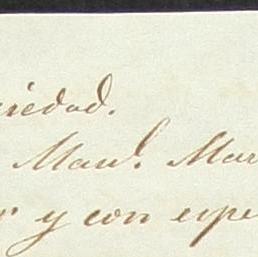 iedad.
Manl. Mar
y con espe